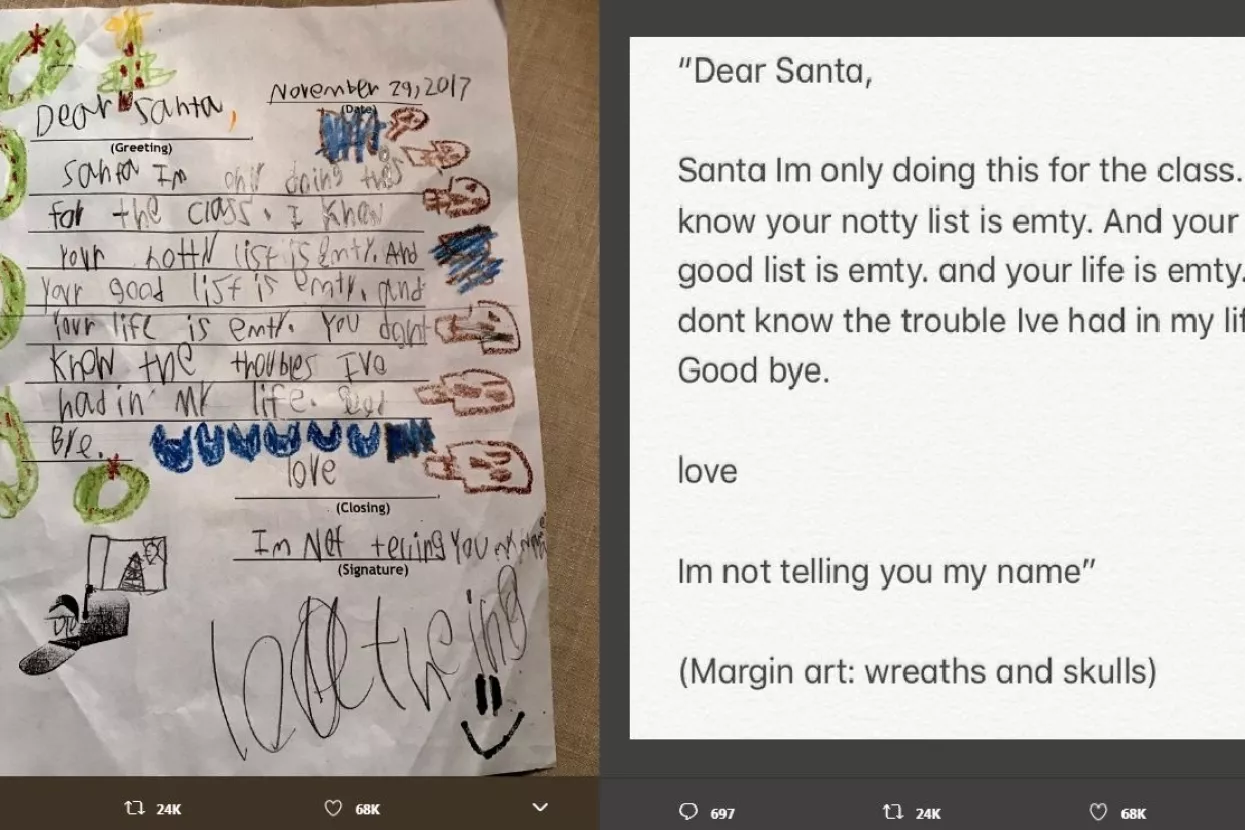 November 29, 2017
(Date)
Dear Santa,
(Greeting)
Santa Im only doing this
for the class. I Know
Your notty list is emty. And
Your good list is emty. and
Your life is emty. You dont
Know the troubles Ive
had in my life. Good
Bye.
love
(Closing)
Im Not telling You my name
(Signature)
24K
68K
"Dear Santa,
Santa Im only doing this for the class.
know your notty list is emty. And your
good list is emty. and your life is emty.
dont know the trouble Ive had in my lif
Good bye.
love
Im not telling you my name"
(Margin art: wreaths and skulls)
697
24K
68K